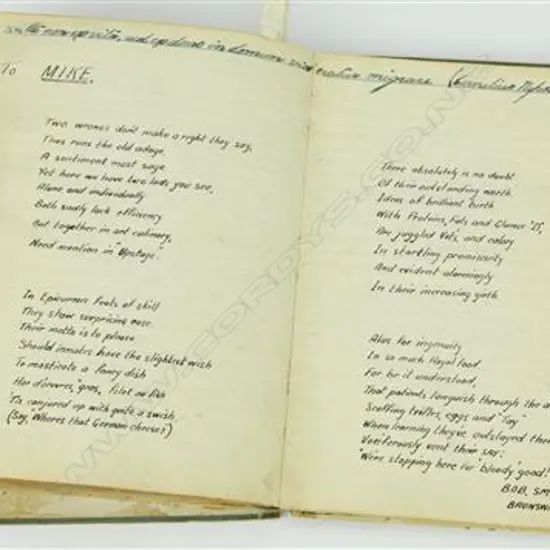 To MIKE.
Two wrongs don't make a right they say,
Thus runs the old adage,
A sentiment most sage
Yet here we have two lads you see,
Alone and individually
Both sadly lack efficiency
But together in art culinary,
Need mention in "Upstage".
In Epicurean feats of skill
They show surprising ease
Their motto is to please
Should inmates have the slightest wish
To masticate a fancy dish
Hor d'oeuvres, gras, filet or fish
'Tis conjured up with quite a swish,
(Say, Wheres that German cheese?)
There absolutely is no doubt
Of their outstanding worth.
Ideas of brilliant birth
With Proteins, Fats and Glucose "D",
Are juggled Vits, and calory
In startling promiscuity
And evident alarmingly
In their increasing girth
Alas for ingenuity
In so much Royal food
For be it understood,
That patients languish through the
Scoffing trifles, eggs and
When learning they've outstayed their
Vociferously vent their say:
"We're stopping here for "bloody" good!
BOB. SM
BRUNSW
WWW.CORDYS.CO.NZ